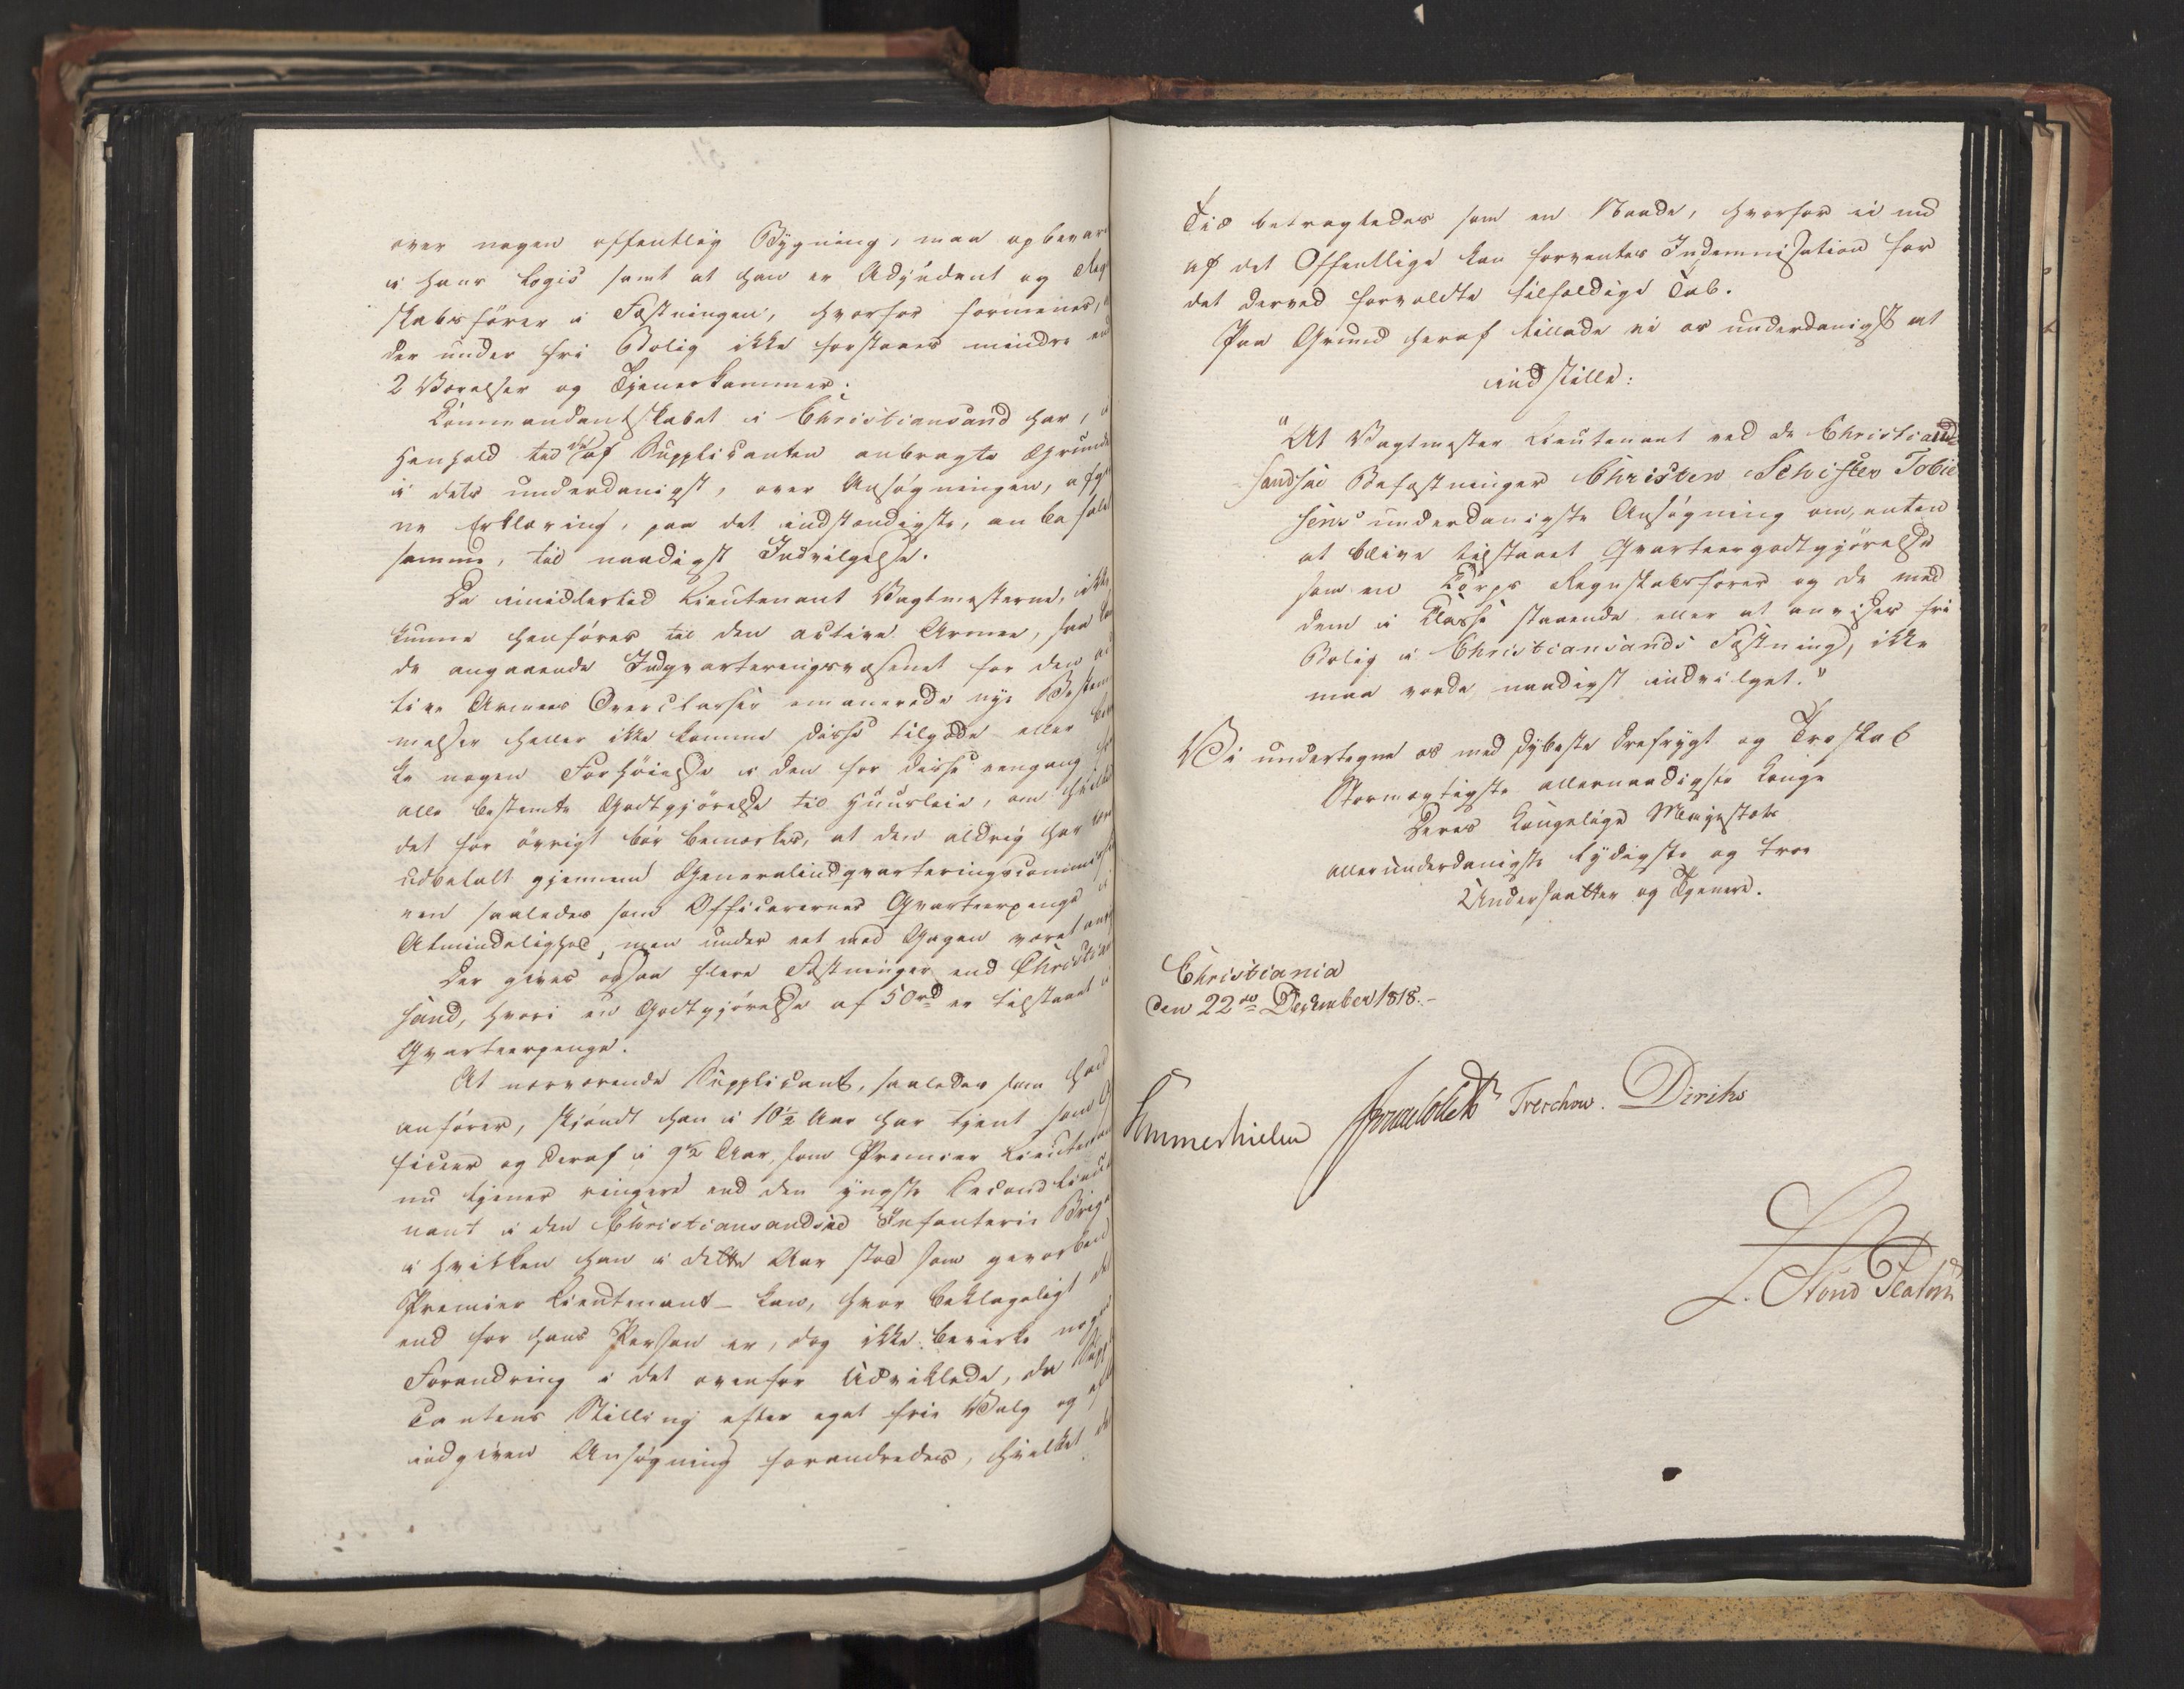 over nogen offentlig Bygning, maa opbevar
i hans Logis samt at han er Adjudent og Reg
skabsfører i Fæstningen, hvorfor formenes,
der under fri Bolig ikke forstaaes mindre end
2 Værelser og Tjenerkammer.
Commandantskabet i Christiansand har, i
Henhold til de af Supplicanten anbragte Grunde
i dets underdanigst, over Ansøgningen, afg
ne Erklæring, paa det indstændigste, anbefalet
samme, til naadigst Indvilgelse.
Da imidlertid Lieutenant Vagtmesterne, ikke
kunne henføres til den active Armee, saa
de angaaende Indqvarteringsvæsenet for den ac
tive Armees Overclasser emanerede nye Bestem
melser heller ikke komme disse tilgode eller
ke nogen Forhøielse i den for disse eengang
alle bestemte Godtgjørelse til Huusleie, om hvilke
det for øvrigt bør bemærkes, at den aldrig har
udbetalt gjennem Generalindqvarteringscommissio
nen saaledes som Officerernes Qvarteerpenge i
Almindelighed, men under eet med Gagen været
Der gives ogsaa flere Fæstninger end Christian
sand, hvori en Godtgjørelse af 50 rd er tilstaaet i
Qvarteerpenge.
At nærværende Supplicant, saaledes som han
anfører, skjøndt han i 10½ Aar har tjent som Of
ficeer og deraf i 9½ Aar, som Premier Lieutenant
nu tjener ringere end den yngste Second Lieute
nant i den Christiansandske Infanterie Brig
i hvilken han i dette Aar stod som gevorben
Premier Lieutenant – kan, hvor beklageligt det
end for hans Person er, dog ikke bevirke nogen
Forandring i det ovenfor Udviklede, da Suppli
cantens Stilling efter eget frie Valg og
indgiven Ansøgning forandredes, hvilket
Tid betragtedes som en Naade, hvorfor ei nu
af det Offentlige kan forventes Indemnisation for
det derved forvoldte tilfældige Tab.
Paa Grund heraf tillade vi os underdanigst at
indstille:
"At Vagtmester Lieutenant ved de Christian
sandske Befæstninger Christen Schifter Tobie
sens underdanigste Ansøgning om, enten
at blive tilstaaet Qvarteergodtgjørelse
som en Corps Regnskabsfører og de med
dem i Classe staaende eller at anvises fri
Bolig i Christiansands Fæstning, ikke
maa vorde naadigst indvilget."
Vi undertegne os med dybeste Ærefrygt og Troskab
Stormægtigste allernaadigste Konge
Deres Kongelige Majestæts
allerunderdanigste lydigste og troe
Undersaatter og Tjenere.
Christiania
den 22de December 1818.–
Sommerhielm Jonas Collett Treschow. Diriks
L. Stoud Platou